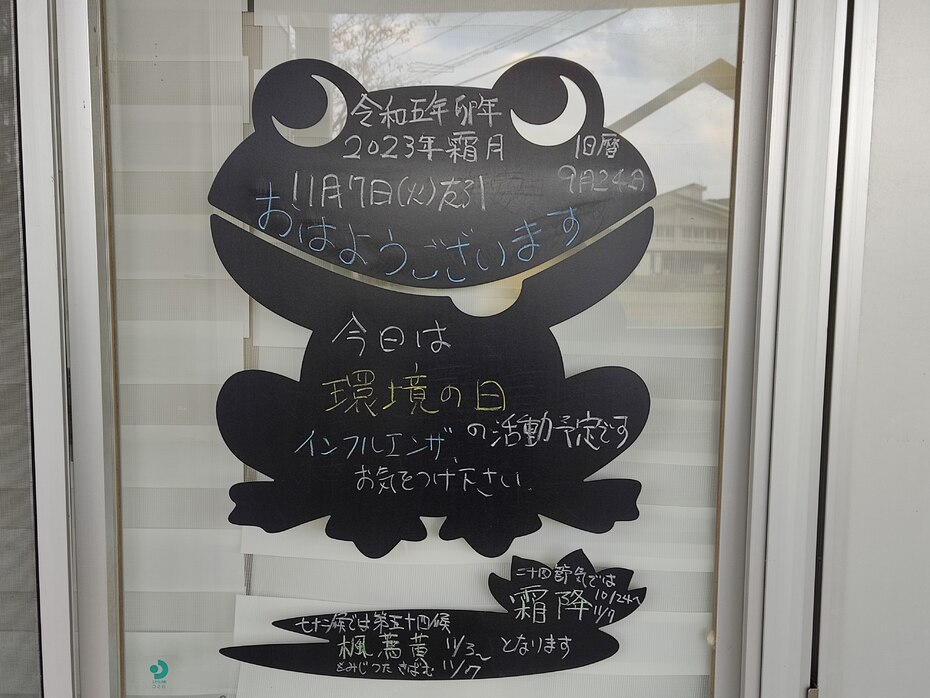 令和五年卯年
2023年霜月
旧暦
9月24日
11月7日(火)友引
おはようございます
今日は
環境の日
の活動予定です
インフルエンザ、
お気をつけ下さい。
二十四節気では
霜降 10/24〜
11/7
七十二候では第五十四候
楓蔦黄 11/3〜
もみじつたきばむ 11/7
となります